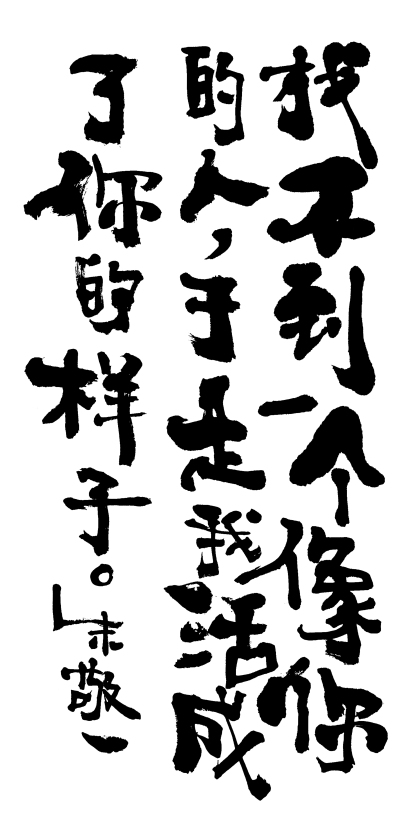 找不到一个像你
的人，于是我活成
了你的样子。」朱敬一